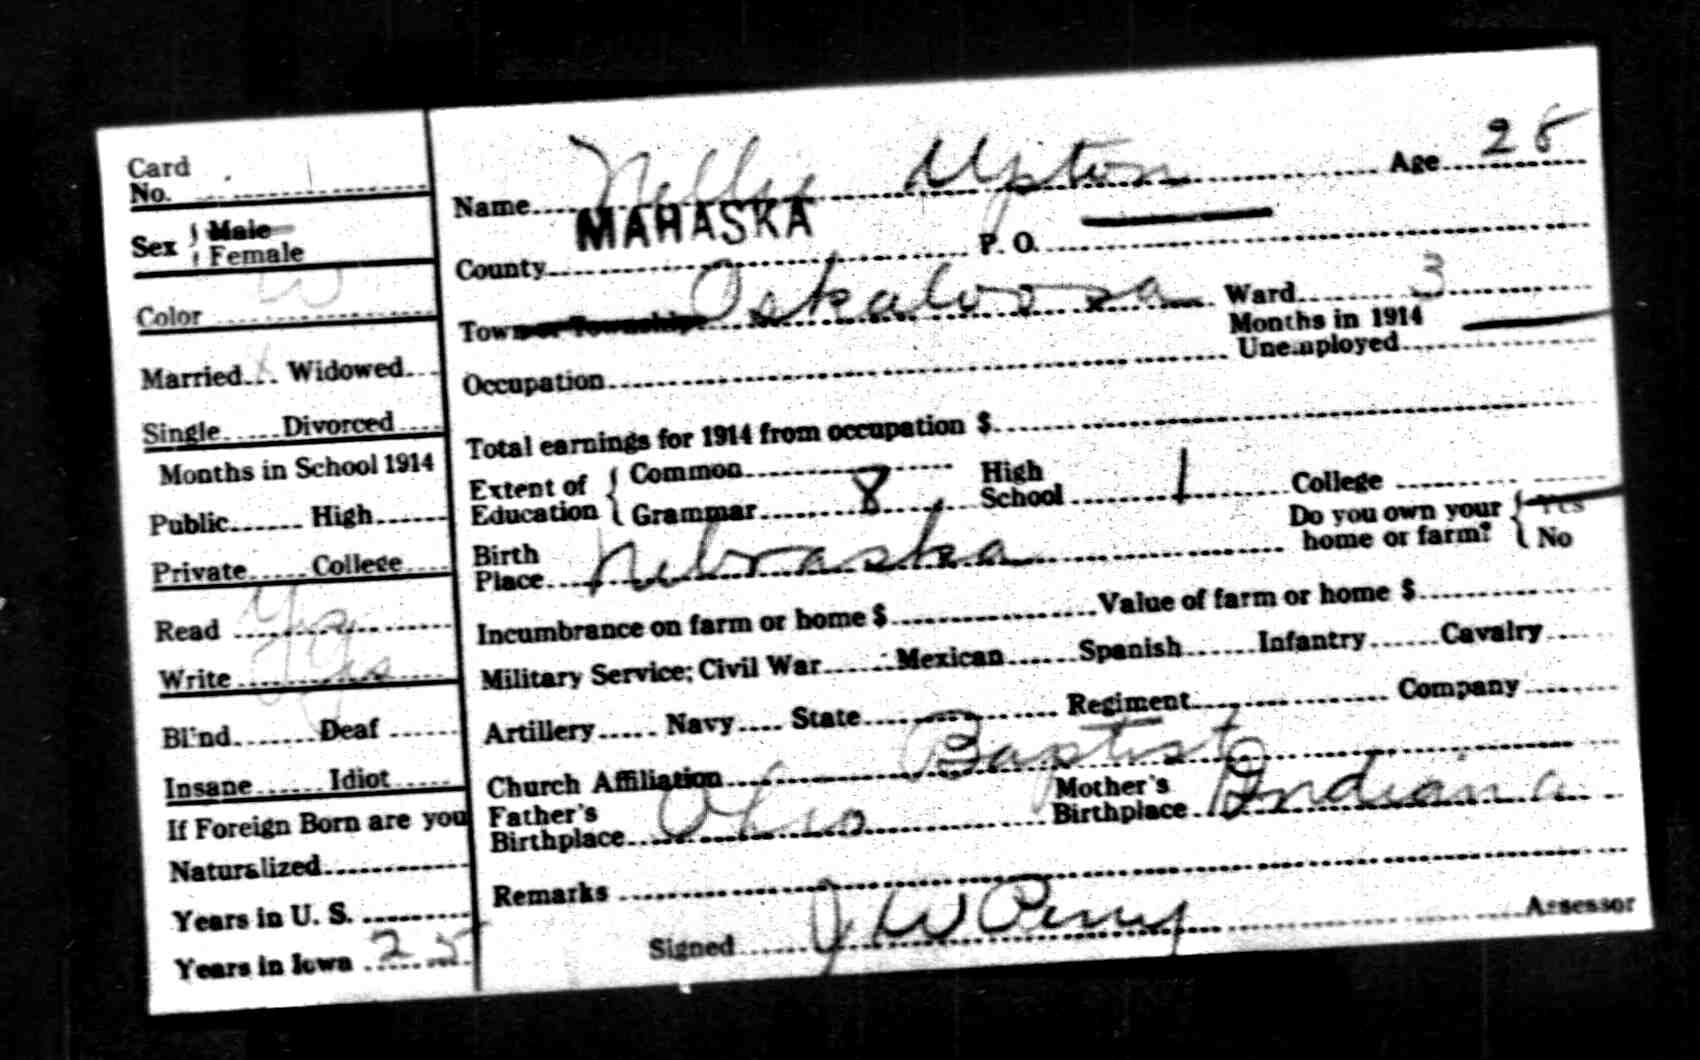 Card
No.
Sex { Male
Female
Color W
Married X Widowed
Single Divorced
Months in School 1914
Public High
Private College
Read Yes
Write Yes
Blind Deaf
Insane Idiot
If Foreign Born are you
Naturalized
Years in U. S.
Years in Iowa 25
Name Nellie Upton Age 28
County MAHASKA P. O. —
Town or Township Oskaloosa Ward 3
Months in 1914
Occupation Unemployed —
Total earnings for 1914 from occupation $
Extent of { Common High College
Education { Grammar 8 School 1
Do you own your { Yes
home or farm? { No
Birth
Place Nebraska
Incumbrance on farm or home $ Value of farm or home $
Military Service; Civil War Mexican Spanish Infantry Cavalry
Artillery Navy State Regiment Company
Church Affiliation Baptist
Father's Mother's
Birthplace Ohio Birthplace Indiana
Remarks
Signed J W Perry Assessor